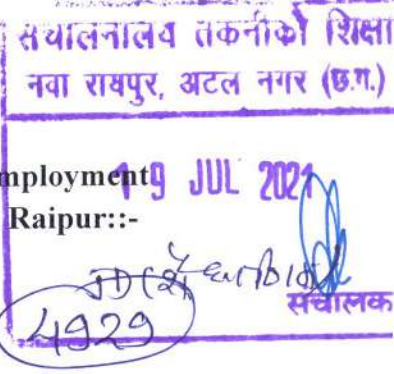 संचालनालय तकनीकी शिक्षा
नवा रायपुर, अटल नगर (छ.ग.)
mployment
19 JUL 2021
Raipur::-
संचालक
4929